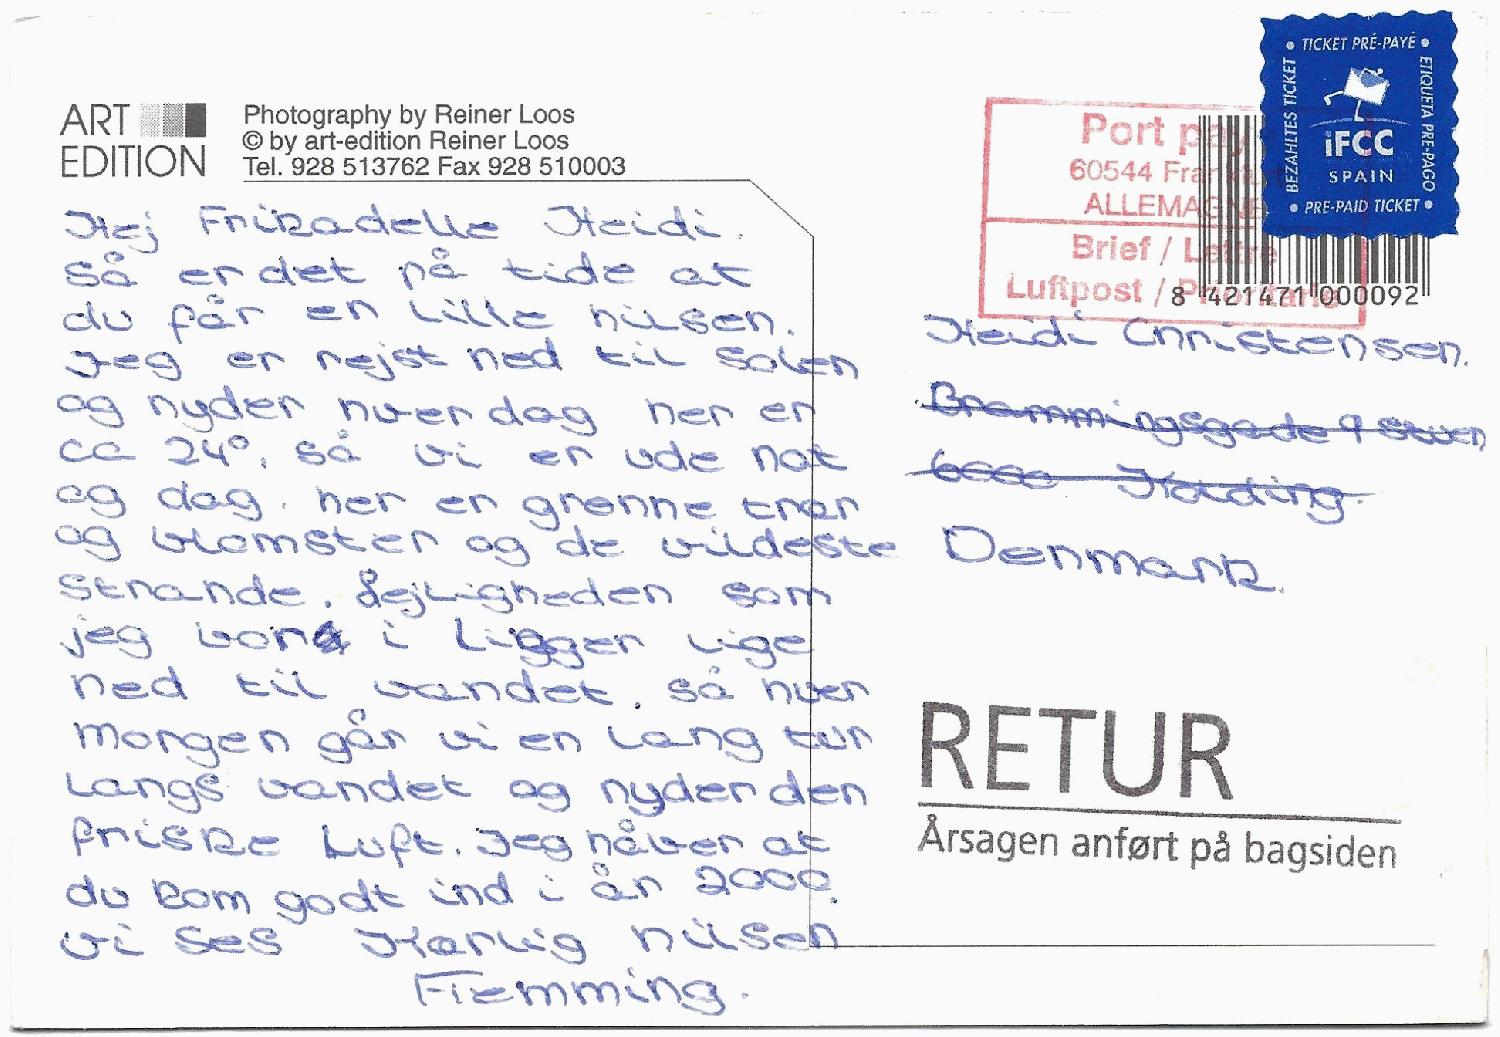 ART
EDITION
Photography by Reiner Loos
© by art-edition Reiner Loos
Tel. 928 513762 Fax 928 510003
Hej Frikadelle Heidi.
Så er det på tide at
du får en lille hilsen.
Jeg er rejst ned til Solen
og nyder hver dag her er
ca 24°. Så vi er ude nat
og dag. her er grønne træer
og blomster og de vildeste
Strande. Lejligheden som
jeg bor i Ligger lige
ned til vandet. Så hver
morgen går vi en lang tur
langs vandet og nyder den
friske Luft. Jeg håber at
du kom godt ind i år 2000.
vi ses Kærlig hilsen
Flemming.
TICKET PRÉ-PAYÉ
BEZAHLTES TICKET
ETIQUETA PRE-PAGO
iFCC
SPAIN
PRE-PAID TICKET
Port pay
60544 Frankfurt
ALLEMAGNE
Brief / Lettre
Luftpost / Prioritaire
8 421471 000092
Heidi Christensen.
Brammingsgade 9 stuen
6000 Kolding.
Denmark.
RETUR
Årsagen anført på bagsiden